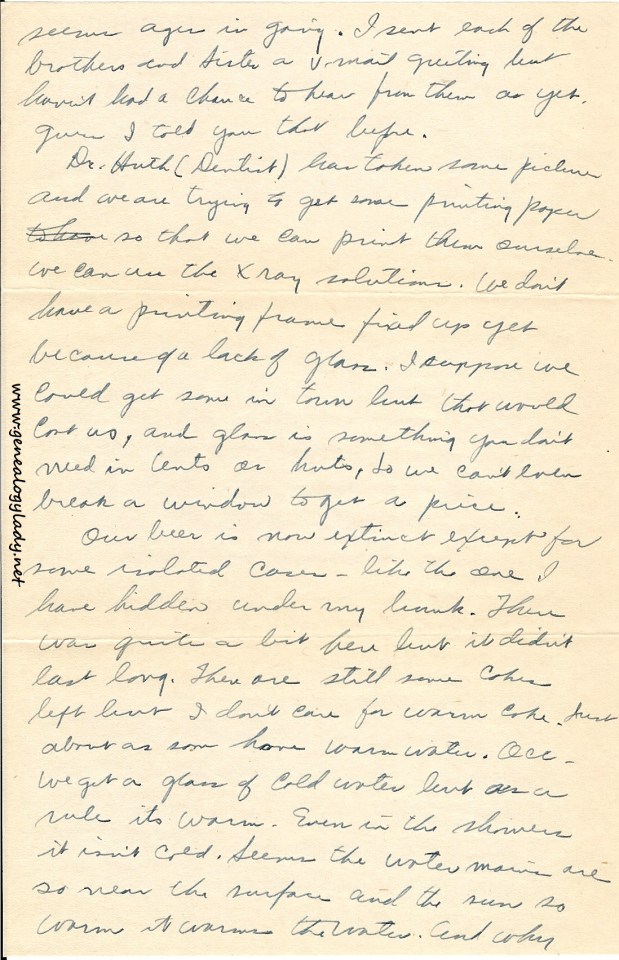 seems ages in going. I sent each of the
brothers and sister a V mail greeting but
haven't had a chance to hear from them as yet.
Guess I told you that before.
Dr. Huth (Dentist) has taken some pictures
and we are trying to get some printing paper
to have so that we can print them ourselves.
We can use the X ray solutions. We don't
have a printing frame fixed up yet
because of a lack of glass. I suppose we
could get some in town but that would
cost us, and glass is something you don't
need in tents or huts, so we can't even
break a window to get a piece.
Our beer is now extinct except for
some isolated cases - like the one I
have hidden under my bunk. There
was quite a bit here but it didn't
last long. There are still some cokes
left but I don't care for warm coke. Just
about as soon have warm water. Occ -
we get a glass of cold water but as a
rule its warm. Even in the showers
it isn't cold. Seems the water mains are
so near the surface and the sun so
warm it warms the water. And why
www.genealogylady.net